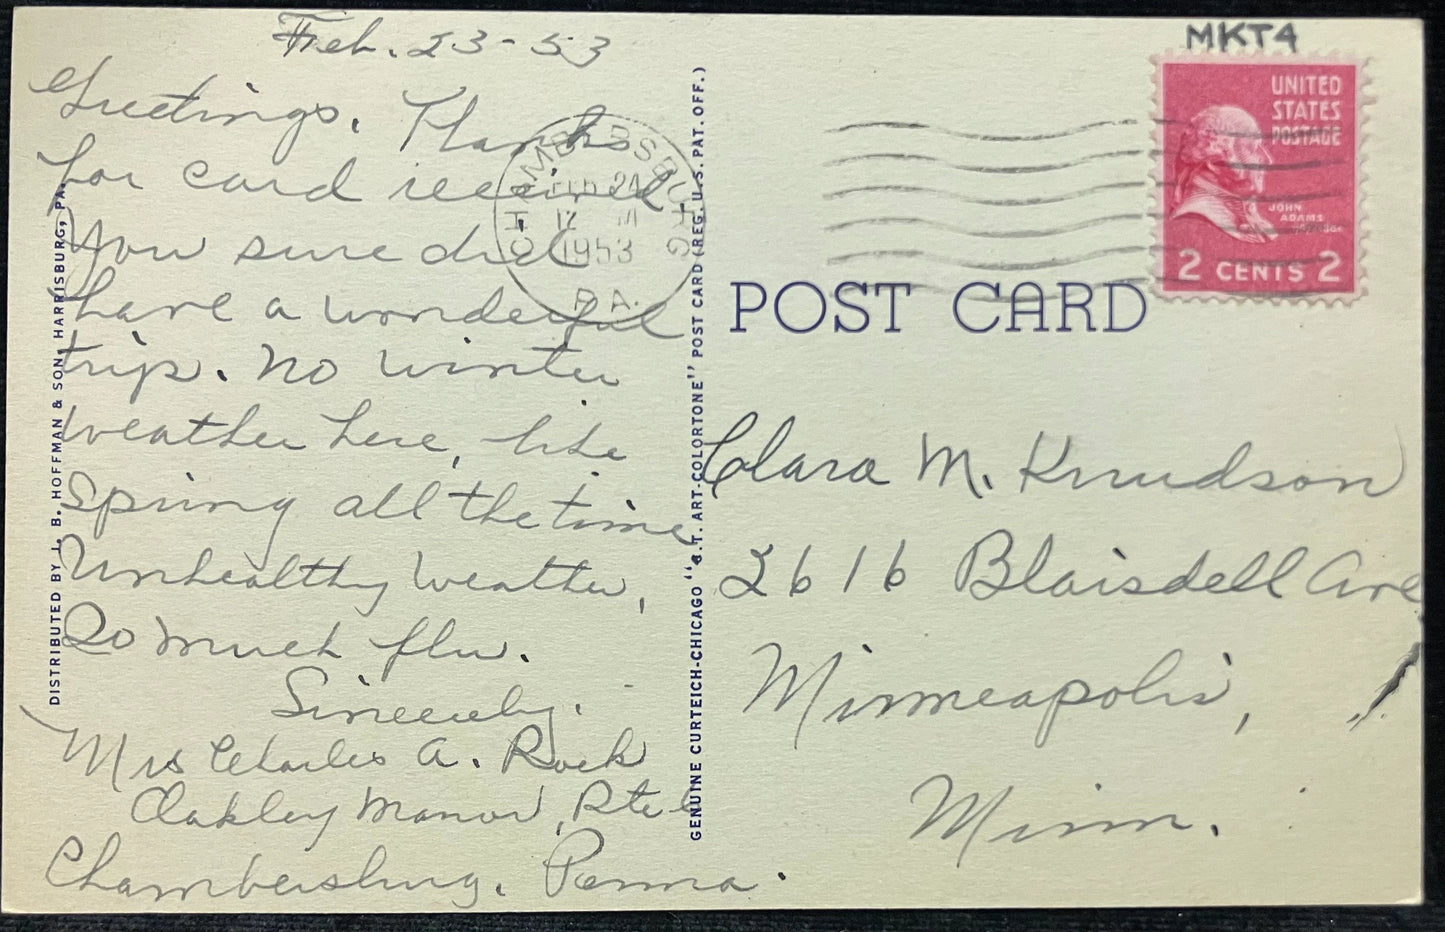 Feb. 23-53
Greetings. Thanks
for card received.
You sure did
have a wonderful
trip. No winter
weather here, like
Spring all the time
Unhealthy weather,
So much flu.
Sincerely.
Mrs Charles A. Rock
Oakley Manor, Rte
Chambersburg. Penna.
DISTRIBUTED BY J. B. HOFFMAN & SON, HARRISBURG, PA.
GENUINE CURTEICH-CHICAGO "C.T. ART-COLORTONE" POST CARD (REG. U.S. PAT. OFF.)
CHAMBERSBURG
FEB 24
12 M
1953
PA.
MKT4
UNITED
STATES
POSTAGE
JOHN
ADAMS
2 CENTS 2
POST CARD
Clara M. Knudson
2616 Blaisdell Ave
Minneapolis,
Minn.